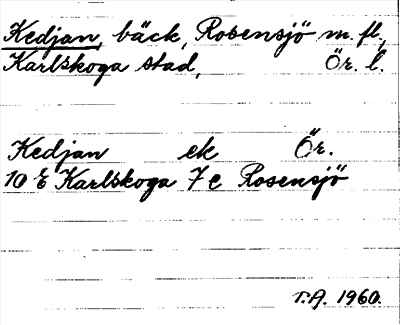 Kedjan, bäck, Rosensjö m. fl.,
Karlskoga stad, Ör. l.
Kedjan ek Ör.
10 E Karlskoga 7 e Rosensjö
T.A. 1960.